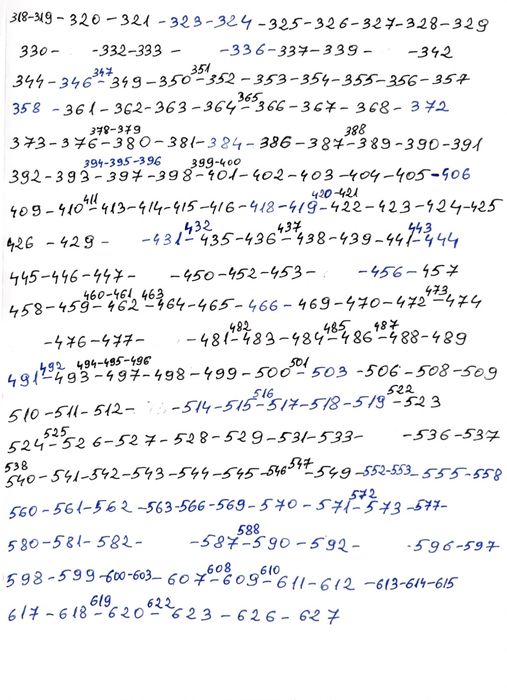 318-319-320-321-323-324-325-326-327-328-329
330- -332-333- -336-337-339- -342
344-346-347-349-350-351-352-353-354-355-356-357
358-361-362-363-364-365-366-367-368-372
373-376-378-379-380-381-384-386-387-388-389-390-391
392-393-394-395-396-397-398-399-400-401-402-403-404-405-406
409-410-411-413-414-415-416-418-419-420-421-422-423-424-425
426-429- -431-432-435-436-437-438-439-441-443-444
445-446-447- -450-452-453- -456-457
458-459-460-461-462-463-464-465-466-469-470-472-473-474
-476-477- -481-482-483-484-485-486-487-488-489
491-492-493-494-495-496-497-498-499-500-501-503-506-508-509
510-511-512- -514-515-516-517-518-519-522-523
524-525-526-527-528-529-531-533- -536-537
538-540-541-542-543-544-545-546-547-549-552-553-555-558
560-561-562-563-566-569-570-571-572-573-577-
580-581-582- -587-588-590-592- -596-597
598-599-600-603-607-608-609-610-611-612-613-614-615
617-618-619-620-622-623-626-627